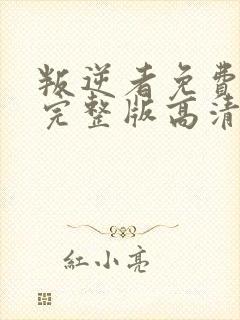 叛逆者免費
完整版高清
紅小亮